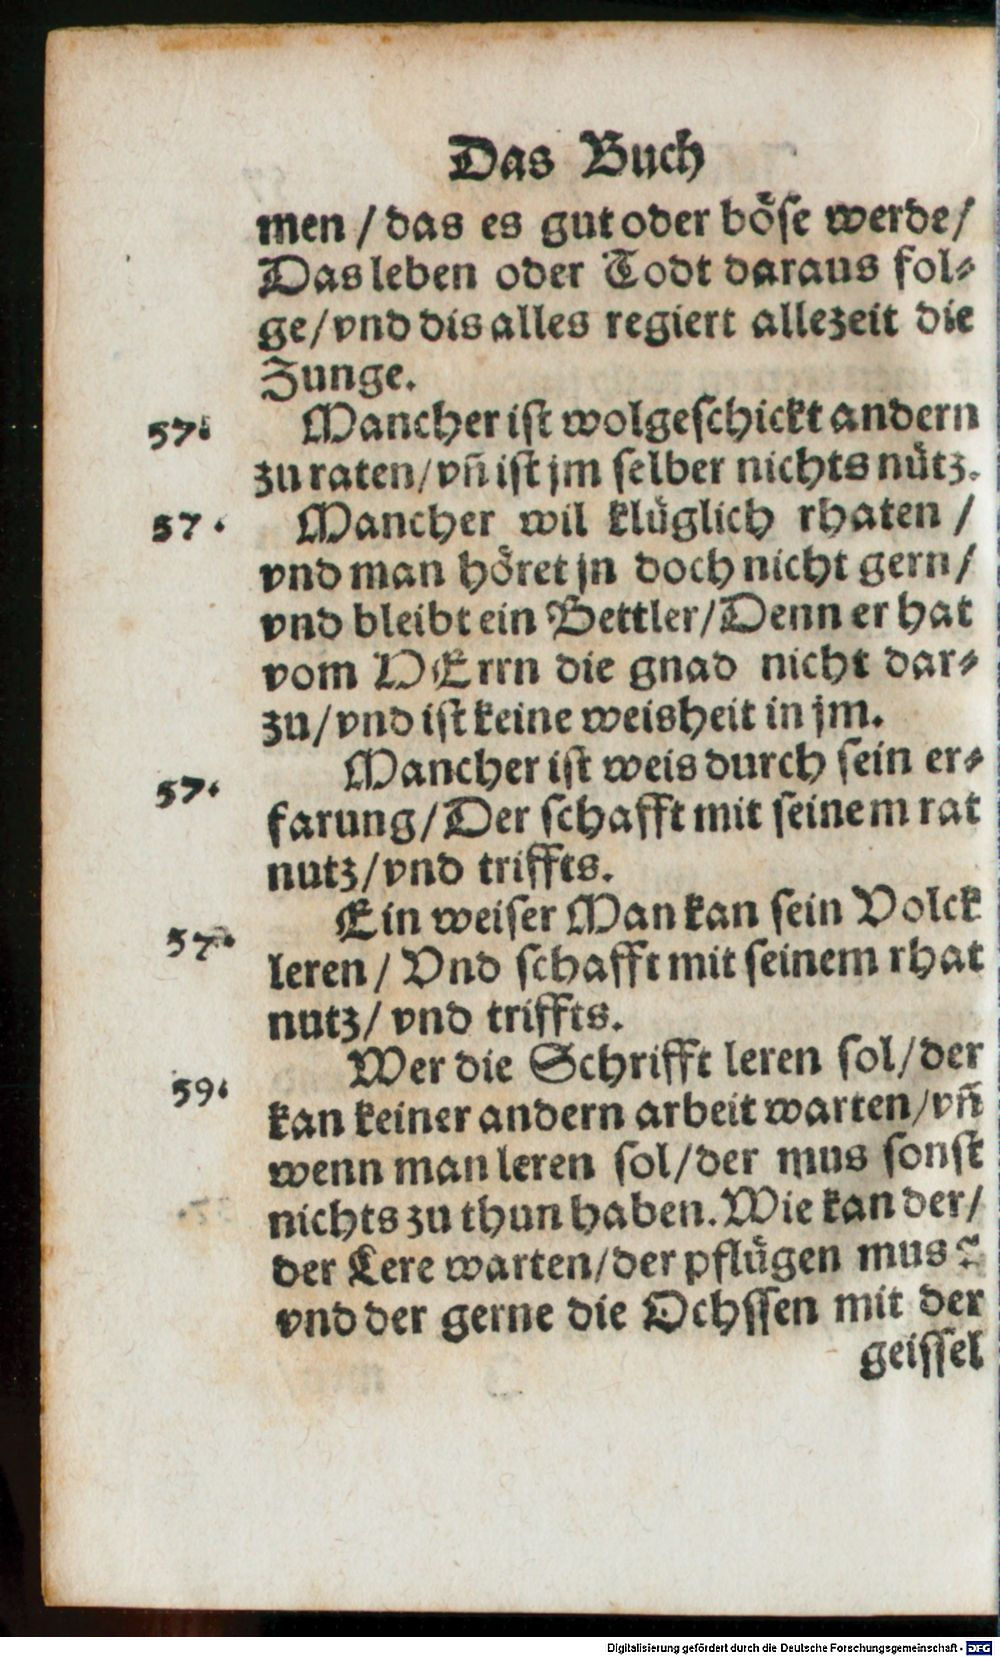 Das Buch
men / das es gut oder böse werde /
Das leben oder Todt daraus fol⸗
ge / vnd dis alles regiert allezeit die
Zunge.
57. Mancher ist wolgeschickt andern
zu raten / vñ ist jm selber nichts nütz.
57. Mancher wil klüglich rhaten /
vnd man höret jn doch nicht gern /
vnd bleibt ein Bettler / Denn er hat
vom HErrn die gnad nicht dar⸗
zu / vnd ist keine weisheit in jm.
57. Mancher ist weis durch sein er⸗
farung / Der schafft mit seinem rat
nutz / vnd triffts.
57. Ein weiser Man kan sein Volck
leren / Vnd schafft mit seinem rhat
nutz / vnd triffts.
59. Wer die Schrifft leren sol / der
kan keiner andern arbeit warten / vñ
wenn man leren sol / der mus sonst
nichts zu thun haben. Wie kan der /
der Lere warten / der pflügen mus?
vnd der gerne die Ochssen mit der
geissel
Digitalisierung gefördert durch die Deutsche Forschungsgemeinschaft - DFG